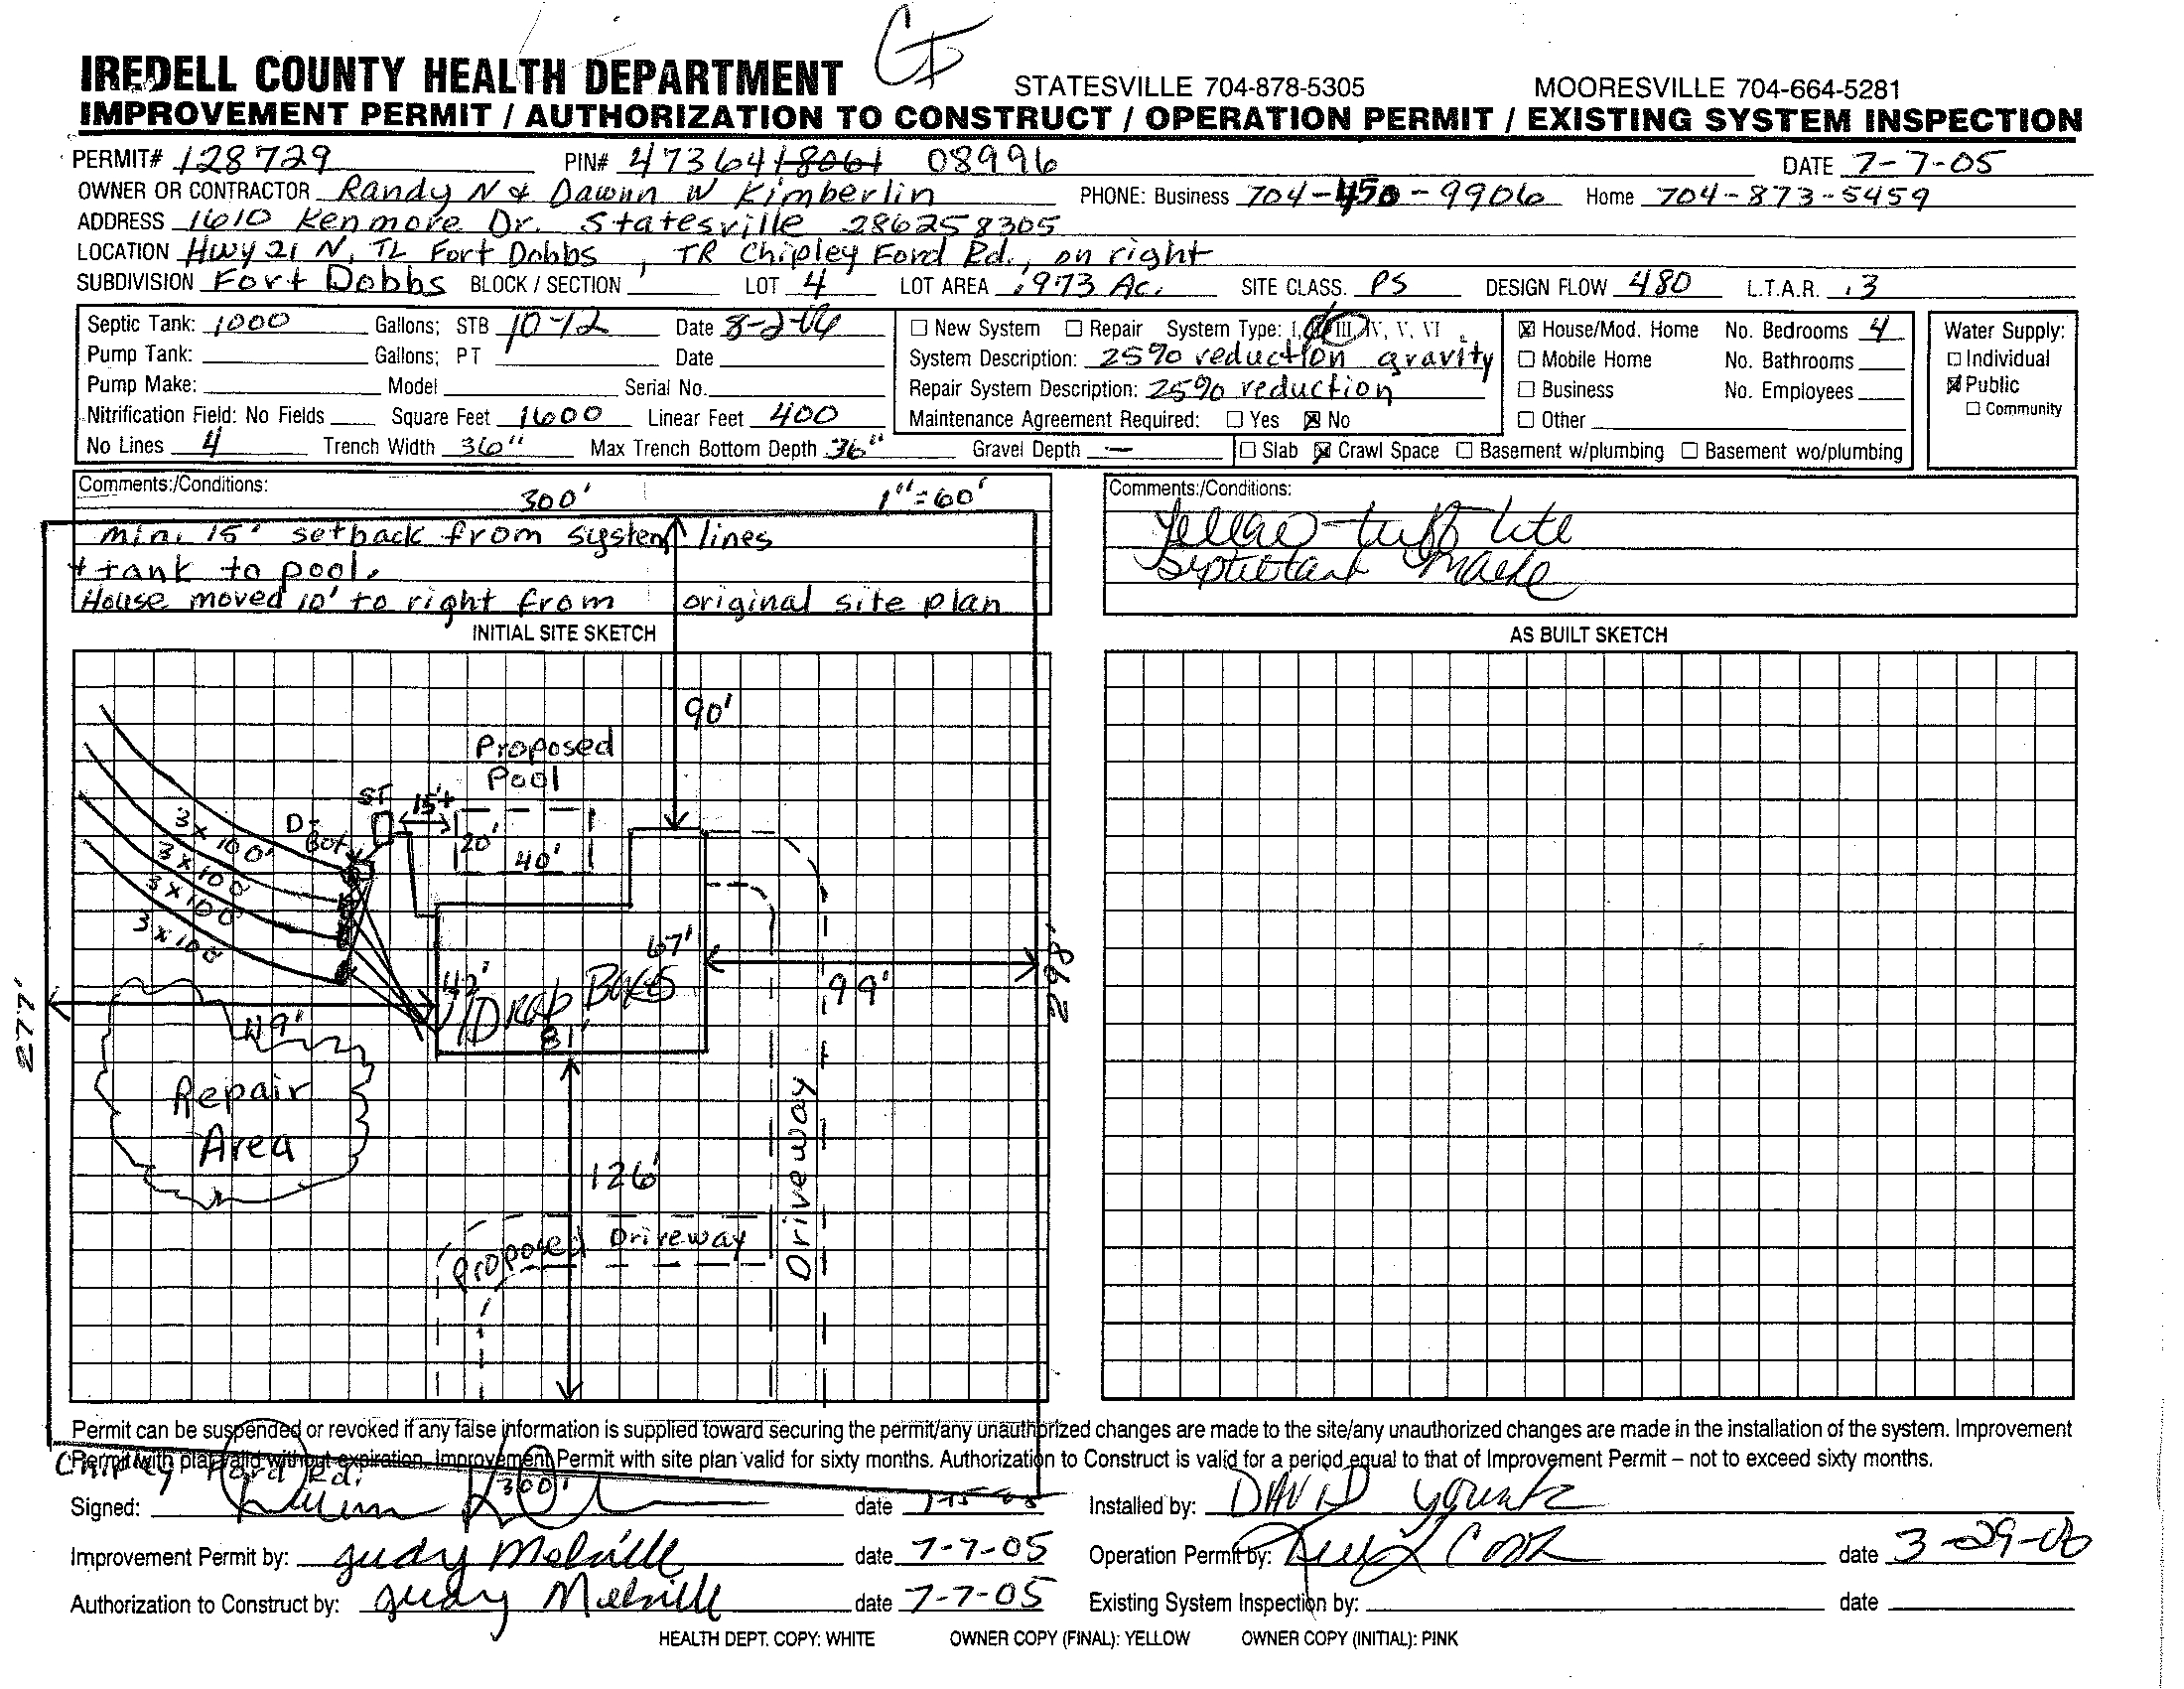 IREDELL COUNTY HEALTH DEPARTMENT
STATESVILLE 704-878-5305 MOORESVILLE 704-664-5281
IMPROVEMENT PERMIT / AUTHORIZATION TO CONSTRUCT / OPERATION PERMIT / EXISTING SYSTEM INSPECTION
PERMIT# 128729 PIN# 473641 8061 08996 DATE 7-7-05
OWNER OR CONTRACTOR Randy N & Dawnn W Kimberlin PHONE: Business 704-450-9906 Home 704-873-5459
ADDRESS 1610 Kenmore Dr. Statesville 286258305
LOCATION Hwy 21 N, TL Fort Dobbs, TR Chipley Ford Rd., on right
SUBDIVISION Fort Dobbs BLOCK / SECTION LOT 4 LOT AREA .973 Ac. SITE CLASS. PS DESIGN FLOW 480 L.T.A.R. .3
Septic Tank: 1000 Gallons; STB 10-12 Date 8-2-06
Pump Tank: Gallons; PT Date
Pump Make: Model Serial No.
Nitrification Field: No Fields Square Feet 1600 Linear Feet 400
No Lines 4 Trench Width 36" Max Trench Bottom Depth 36" Gravel Depth —
New System Repair System Type: I, II, III, IV, V, VI
System Description: 25% reduction gravity
Repair System Description: 25% reduction
Maintenance Agreement Required: Yes No
House/Mod. Home No. Bedrooms 4
Mobile Home No. Bathrooms
Business No. Employees
Other
Slab Crawl Space Basement w/plumbing Basement wo/plumbing
Water Supply:
Individual
Public
Community
Comments:/Conditions:
300' 1"=60'
min. 15' setback from system lines
+ tank to pool.
House moved 10' to right from original site plan
Comments:/Conditions:
Yellow tuff tite
Septic tank Made
INITIAL SITE SKETCH
AS BUILT SKETCH
90'
Proposed
Pool
ST
15'+
D-
Box
20'
40'
3 x 100'
3 x 100'
3 x 100'
3 x 100'
67'
42'
Drop Boxes
81'
99'
298'
277'
119'
Repair
Area
126'
Driveway
Proposed Driveway
Permit can be suspended or revoked if any false information is supplied toward securing the permit/any unauthorized changes are made to the site/any unauthorized changes are made in the installation of the system. Improvement
Permit with plat valid without expiration. Improvement Permit with site plan valid for sixty months. Authorization to Construct is valid for a period equal to that of Improvement Permit – not to exceed sixty months.
Chipley Ford Rd.
300'
Signed: date 7-15-05 Installed by: DAVID Yountz
Improvement Permit by: Judy Melville date 7-7-05 Operation Permit by: date 3-29-06
Authorization to Construct by: Judy Melville date 7-7-05 Existing System Inspection by: date
HEALTH DEPT. COPY: WHITE OWNER COPY (FINAL): YELLOW OWNER COPY (INITIAL): PINK